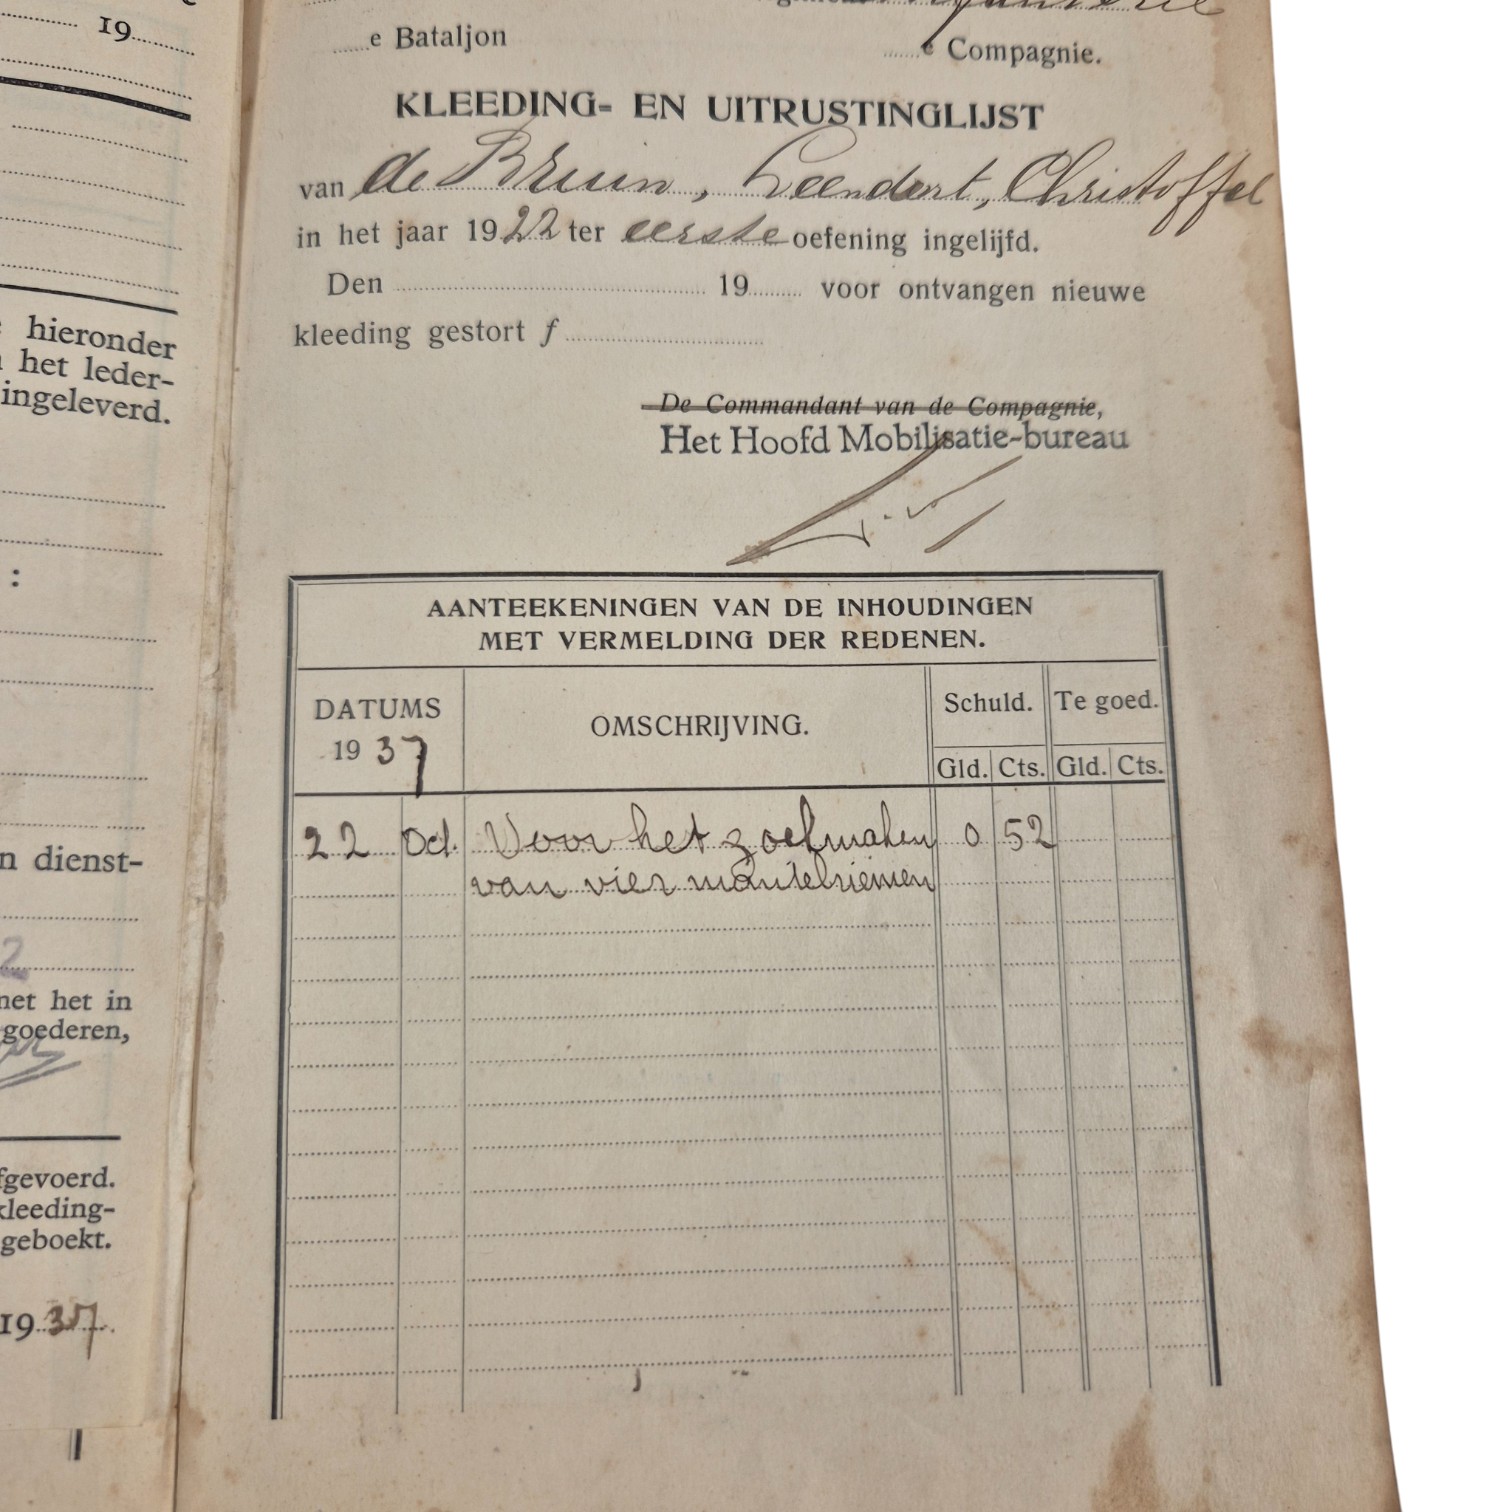 19
e Bataljon
e Compagnie.
KLEEDING- EN UITRUSTINGLIJST
van de Bruin, Leendert, Christoffel
in het jaar 1922 ter eerste oefening ingelijfd.
Den 19 voor ontvangen nieuwe
kleeding gestort f
De Commandant van de Compagnie,
Het Hoofd Mobilisatie-bureau
AANTEEKENINGEN VAN DE INHOUDINGEN
MET VERMELDING DER REDENEN.
DATUMS
1937
OMSCHRIJVING.
Schuld. Te goed.
Gld. Cts. Gld. Cts.
22 Oct. Voor het zoekmaken 0 52
van vier mantelriemen
hieronder
het leder-
ingeleverd.
:
n dienst-
2
met het in
goederen,
fgevoerd.
kleeding-
geboekt.
1937.